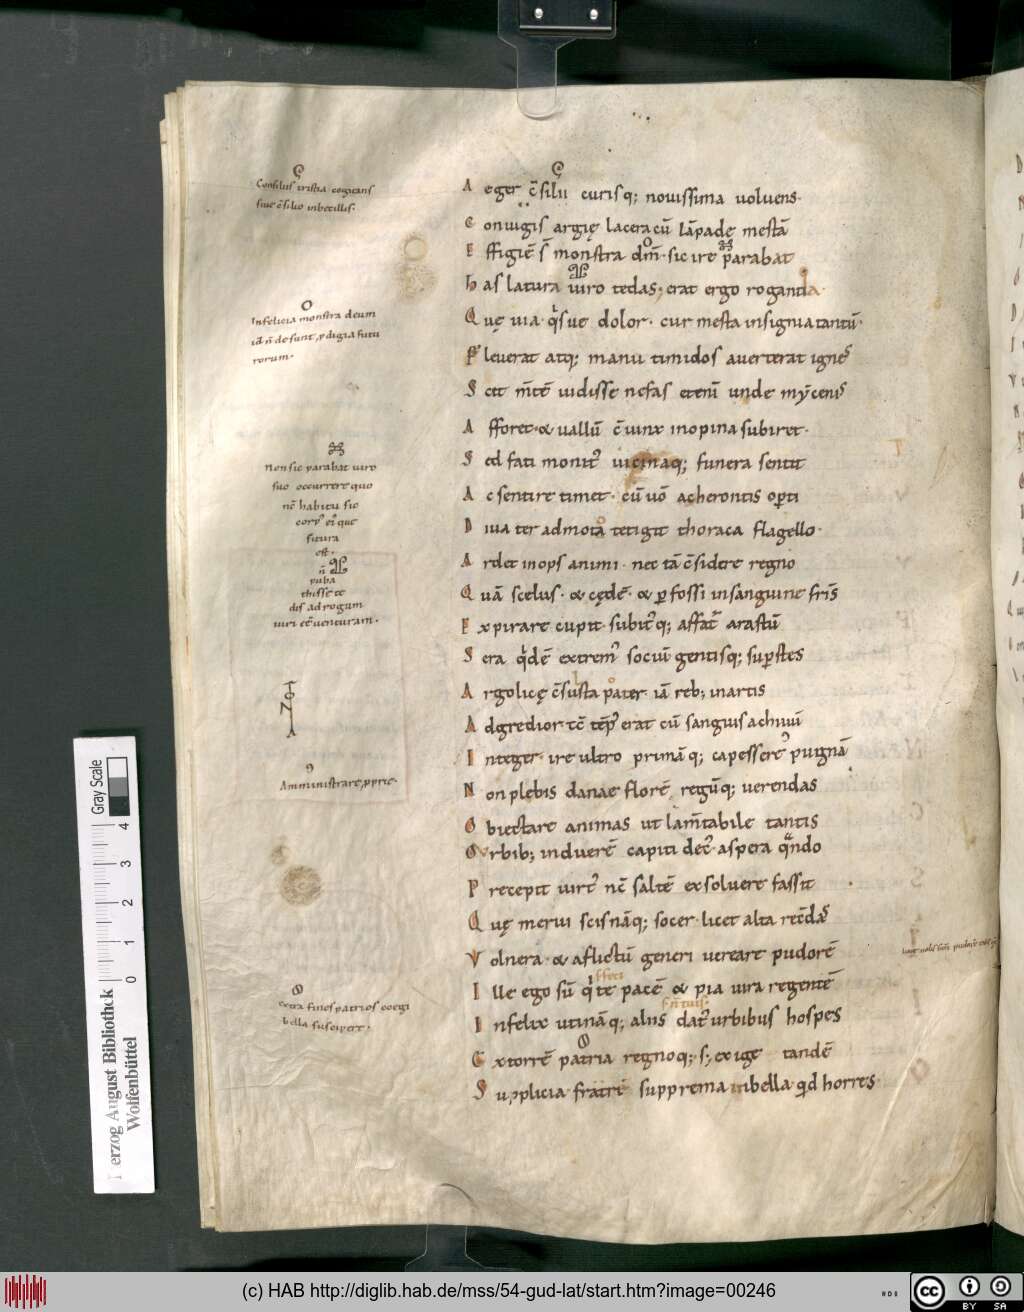 Consiliis tristia cogitans
siue c̄silio inbecillis·
Infelicia monstra deum
non sic parabat uiro
suo occurrere quo
nc̄ habitu sic
futura
est·
dis ad rogum
Amministrare
extra fines patrios coegi
bella suscipere·
A eger c̄silii curisq; nouissima uoluens·
C oniugis argię lacera cū lāpade mestā
E ffigiē s̄ monstra dm̄· sic ire parabat
H as latura uiro tedas; erat ergo roganti
Q uę uia· qͥsue dolor· cur mesta insignia tantū·
F leuerat atq; manu timidos auerterat igneˢ
S cit m̄tē uidisse nefas etenī unde mẏceniˢ
A fforet· & uallū c̄iunx inopina subiret·
S ed fati monitˀ uicinaq; funera sentit
A c sentire timet· cū uo᷄ acherontis op̲ti
D iua ter admota tetigit thoraca flagello·
A rdet inops animi· nec tā c̄sidere regno
Q uā scelus· & cędē· & p̲fossi in sanguine fr̄is
E xpirare cupit subitˀq; affatˀ arastū
S era qͥdē extremˀ sociū gentisq; sup̲stes
A rgolicę c̄susta pater· iā reb; inartis
A dgredior tc̄ tēpˀ erat cū sanguis achiuū
I nteger· ire ultro primāq; capessere pugnā
N on plebis danae florē regūq; uerendas
O biectare animas ut lam̄tabile tantis
O rbib; induerē capiti decˀ aspera qn̄do
P recepit uirtˀ nc̄ saltē exsoluere fassit
Q uę merui scis nāq; socer· licet alta recōdaˢ
V olnera· & aflictū generi uereare pudorē
I lle ego sū qͥ te pacē & pia iura regentē
I nfelix utināq; aliis datˀ urbibus hospes
E xtorrē patria regnoq; s; exige tandē
S upplicia· fratri supprema in bella· qd horres·
Gray Scale
4
3
2
1
0
Herzog August Bibliothek
Wolfenbüttel
(c) HAB http://diglib.hab.de/mss/54-gud-lat/start.htm?image=00246
cc BY SA